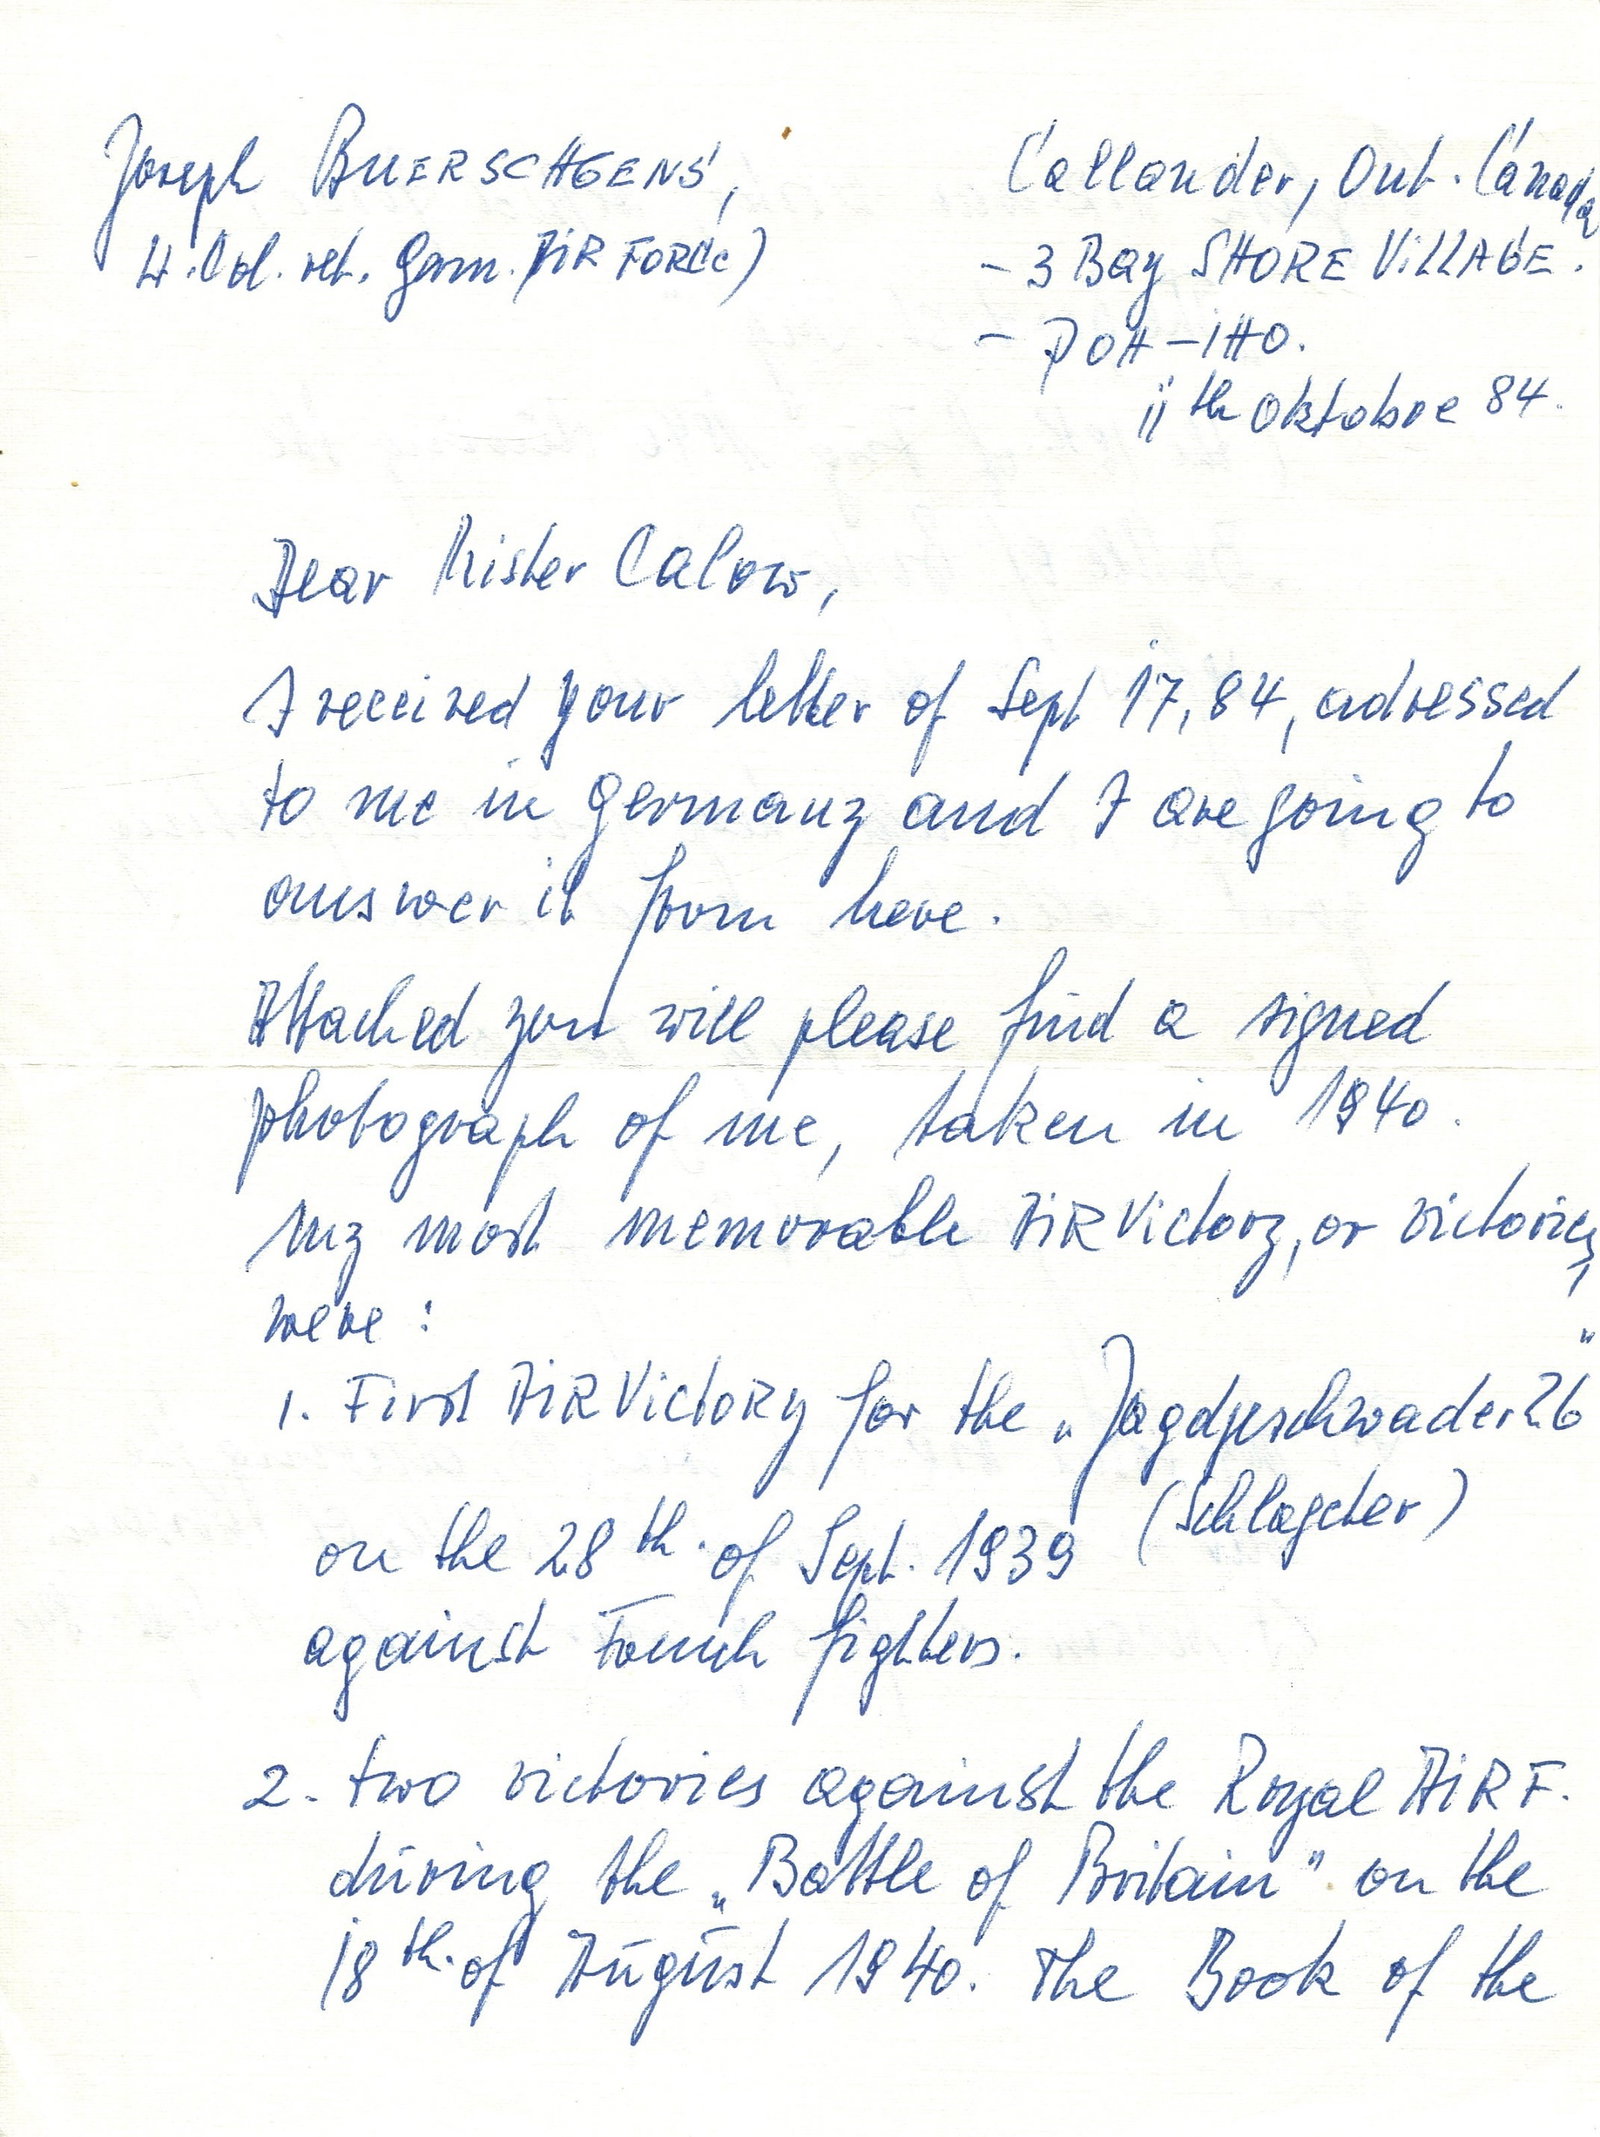 Joseph BUERSCHGENS,
Lt. Col. ret. Germ. AIR FORCe)
Callander, Ont. Canada
- 3 Bay SHORE ViLLAGE.
- POH-1HO.
11th Oktobre 84.
Dear Mister Calow,
I received your letter of Sept 17, 84, adressed
to me in Germany and I are going to
answer it from here.
Attached you will please find a signed
photograph of me, taken in 1940.
My most memorable AiR Victory, or victories,
were:
1. First AiR VictoRy for the „Jagdgeschwader 26"
(Schlageter)
on the 28th. of Sept. 1939
against French fighters.
2. two victories against the Royal AiR F.
during the „Battle of Britain" on the
18th. of August 1940. The Book of the